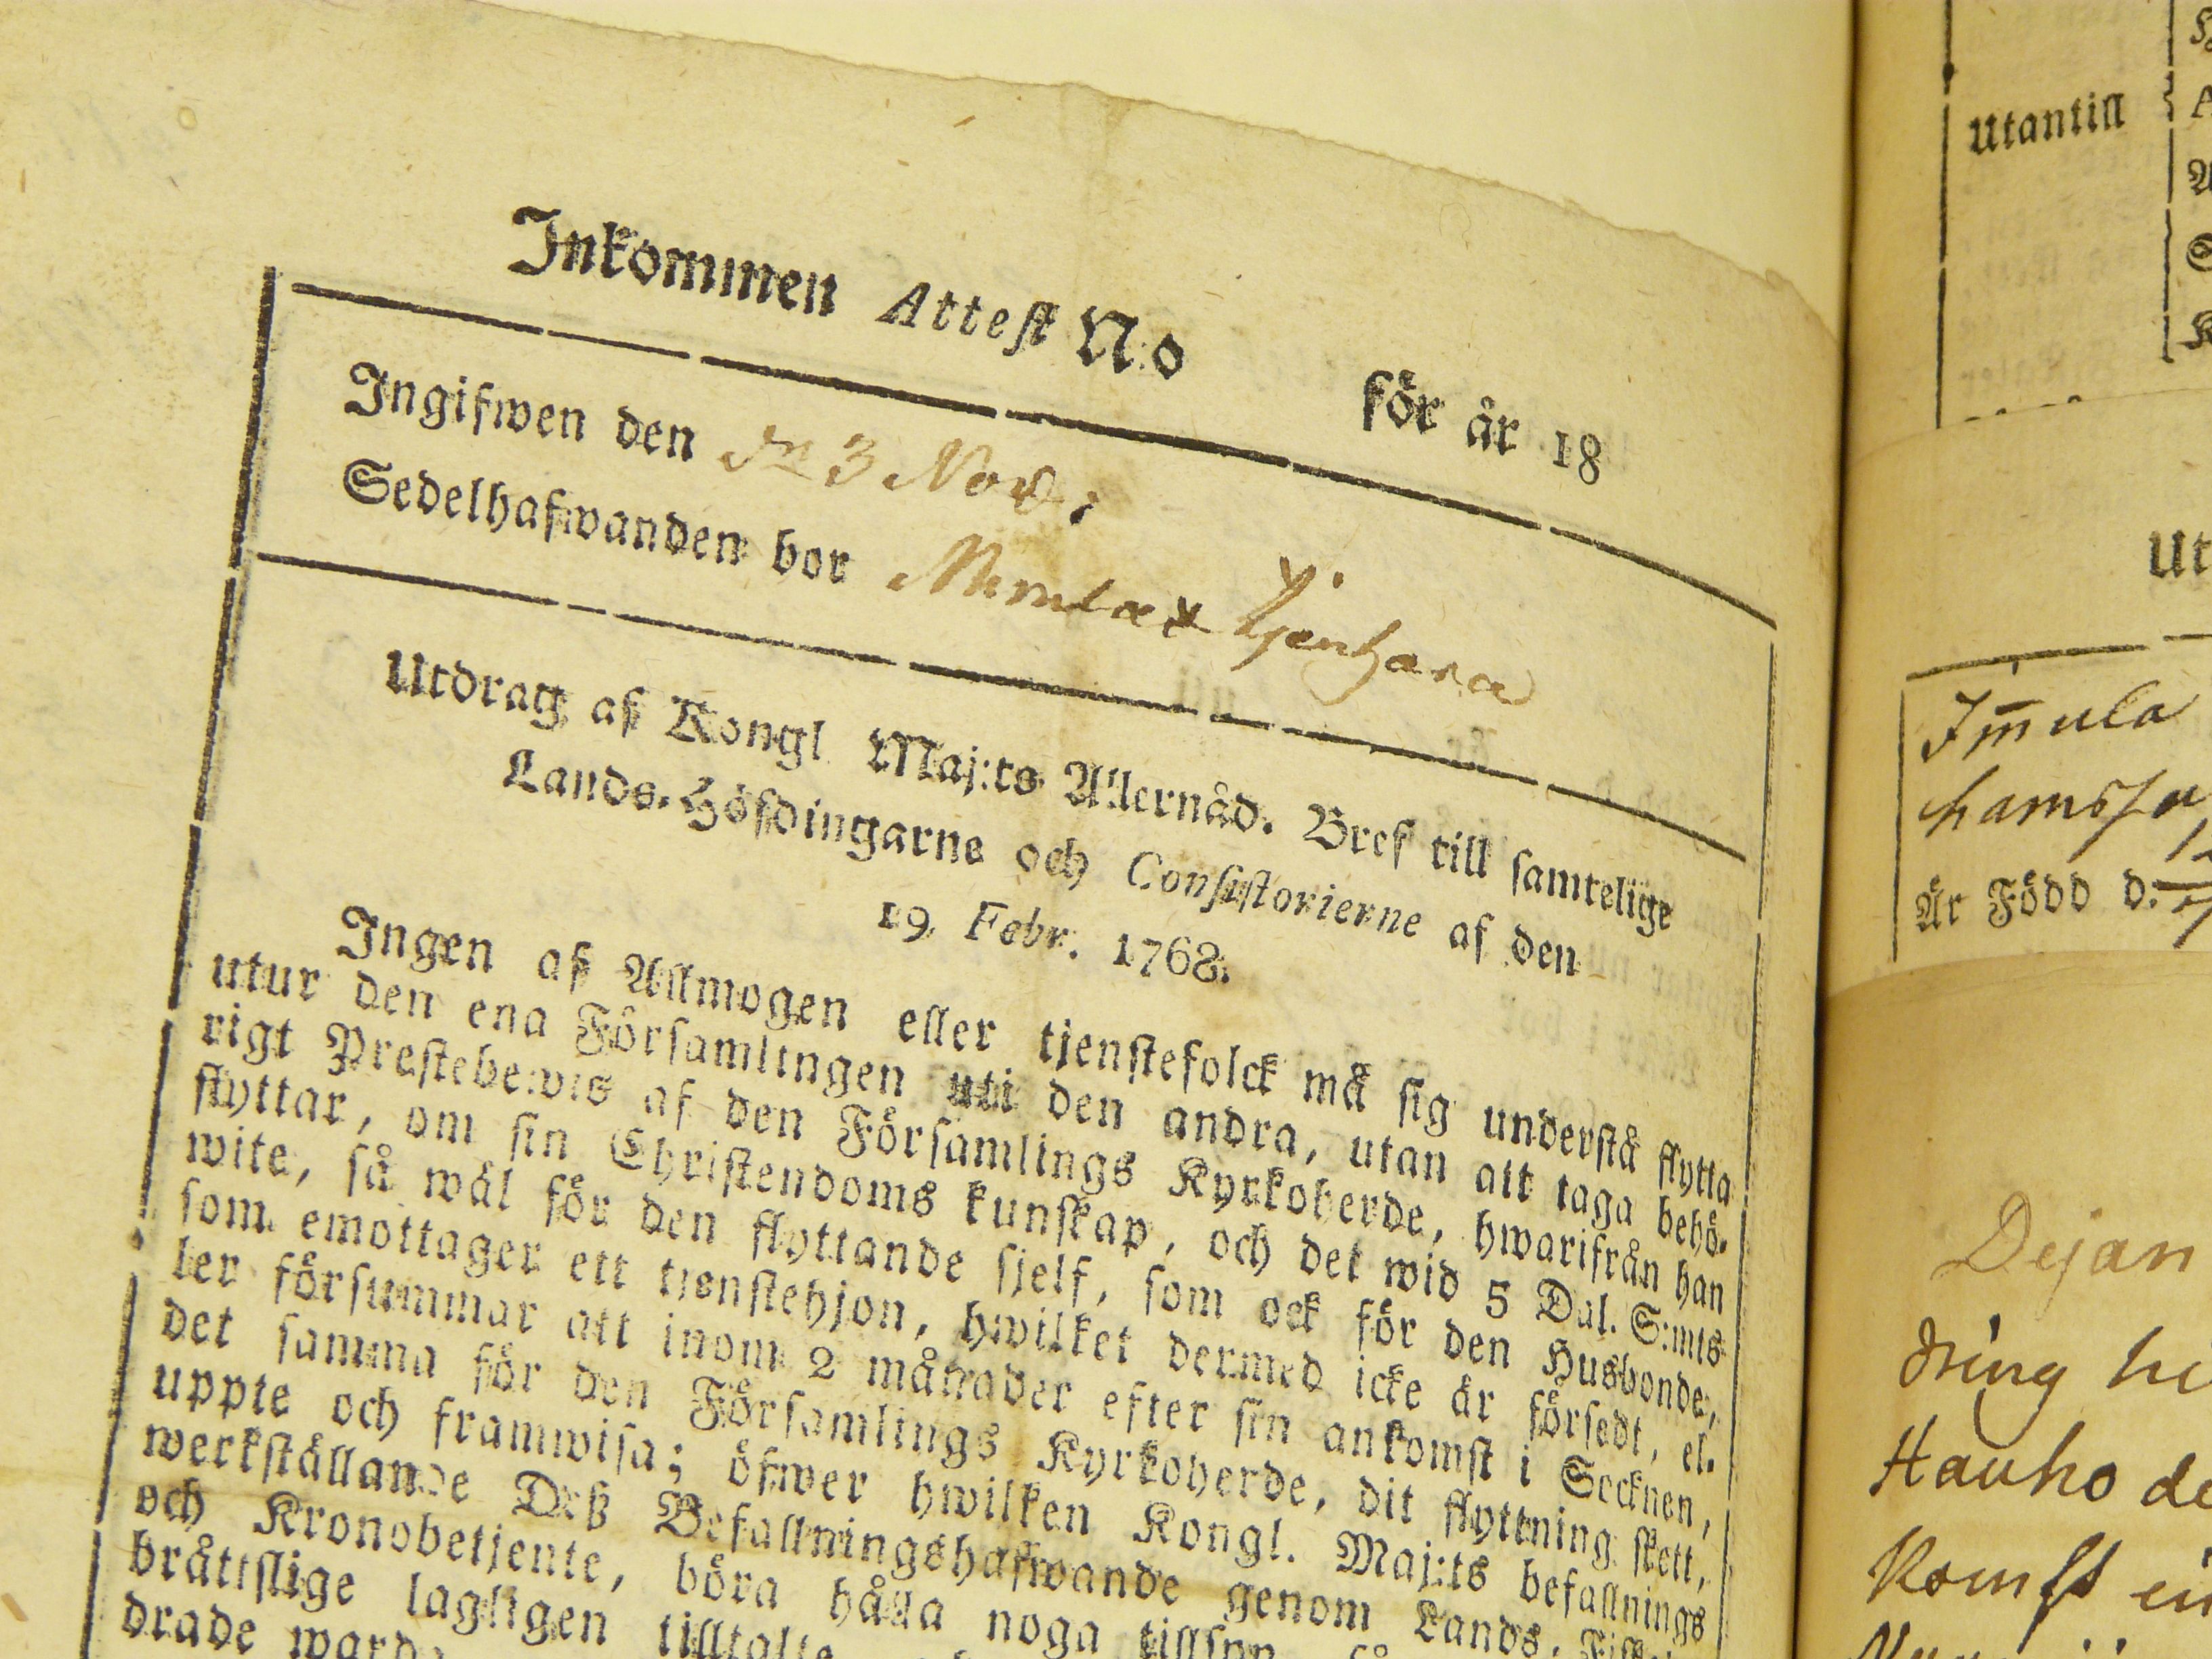 Inkommen Attest N:o för år 18
Ingifwen den 3 Nov:
Sedelhafwanden bor
Utdrag af Kongl. Maj:ts Allernåd. Bref till samtelige
Lands-Höfdingarne och Consistorierne af den
19. Febr. 1768.
Ingen af Allmogen eller tjenstefolck må sig understå flytta
utur den ena Församlingen uti den andra, utan att taga behö-
rigt Prestebewis af den Församlings Kyrkoherde, hwarifrån han
flyttar, om sin Christendoms kunskap, och det wid 5 Dal. S:mts
wite, så wäl för den flyttande sjelf, som ock för den Husbonde,
som emottager ett tjenstehjon, hwilket dermed icke är försedt, el-
ler försummar att inom 2 månader efter sin ankomst i Socknen,
det samma för den Församlings Kyrkoherde, dit flyttning skett,
uppte och framwisa; öfwer hwilken Kongl. Maj:ts befallnings
werkställande Deß Befallningshafwande genom Lands-
och Kronobetjente, böra hålla noga tillsyn
bråttslige lagligen tilltalte
drade
Utantill
Ut
Immula
Är Född d.
Dejan
dring
Hauho de
Komst